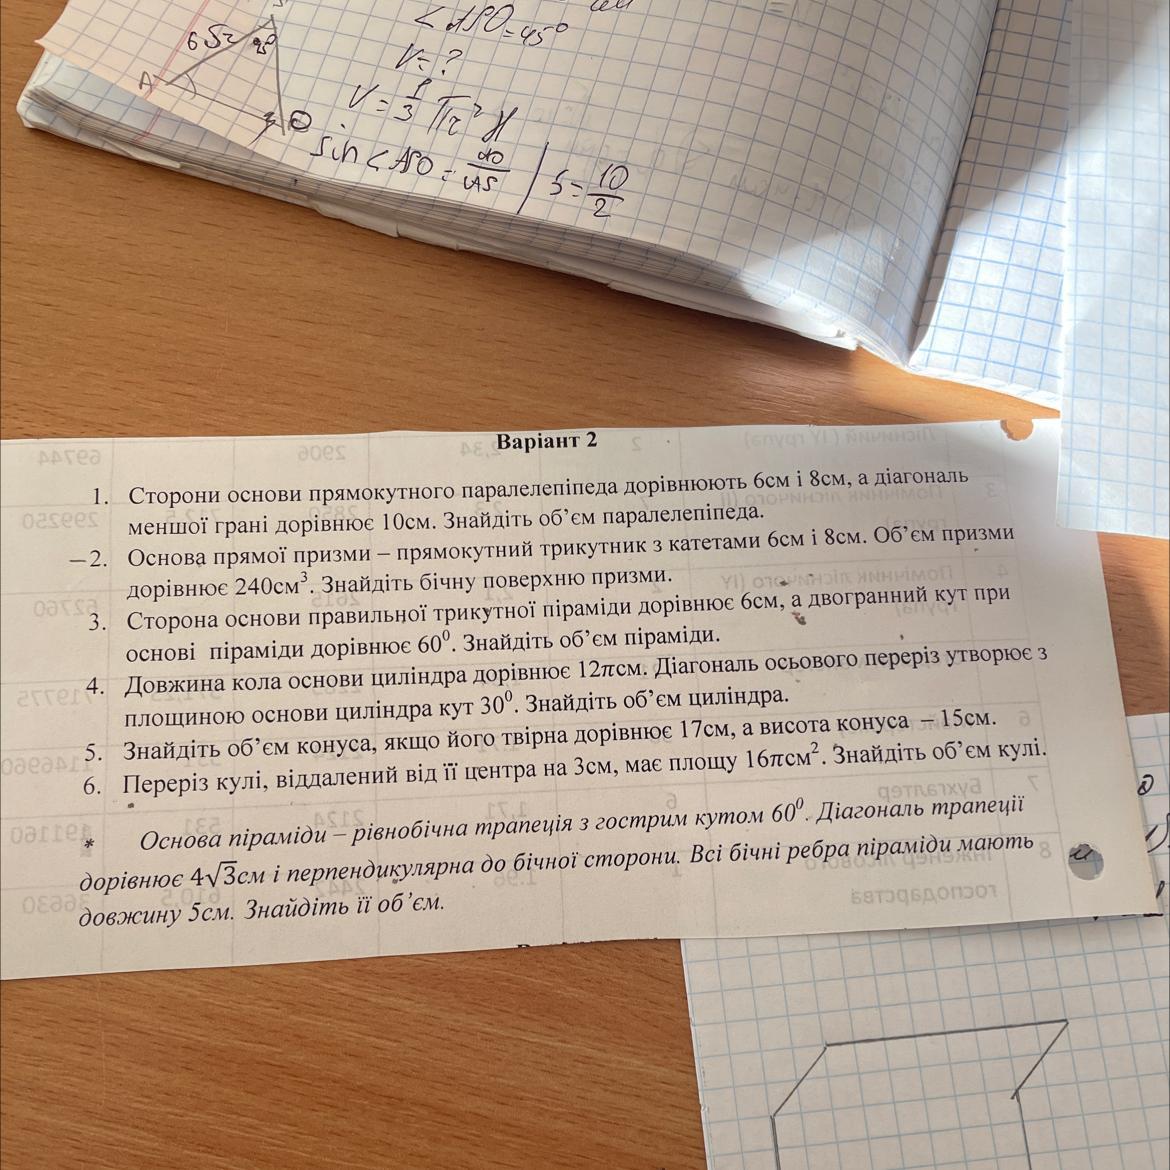 6√2
45°
A
O
<ASO=45°
V=?
V=1/3 πr²H
sin<ASO=AO/AS
S=10/2
Варіант 2
1. Сторони основи прямокутного паралелепіпеда дорівнюють 6см і 8см, а діагональ
меншої грані дорівнює 10см. Знайдіть об’єм паралелепіпеда.
–2. Основа прямої призми – прямокутний трикутник з катетами 6см і 8см. Об’єм призми
дорівнює 240см³. Знайдіть бічну поверхню призми.
3. Сторона основи правильної трикутної піраміди дорівнює 6см, а двогранний кут при
основі піраміди дорівнює 60⁰. Знайдіть об’єм піраміди.
4. Довжина кола основи циліндра дорівнює 12πсм. Діагональ осьового переріз утворює з
площиною основи циліндра кут 30⁰. Знайдіть об’єм циліндра.
5. Знайдіть об’єм конуса, якщо його твірна дорівнює 17см, а висота конуса – 15см.
6. Переріз кулі, віддалений від її центра на 3см, має площу 16πсм². Знайдіть об’єм кулі.
* Основа піраміди – рівнобічна трапеція з гострим кутом 60⁰. Діагональ трапеції
дорівнює 4√3см і перпендикулярна до бічної сторони. Всі бічні ребра піраміди мають
довжину 5см. Знайдіть її об’єм.